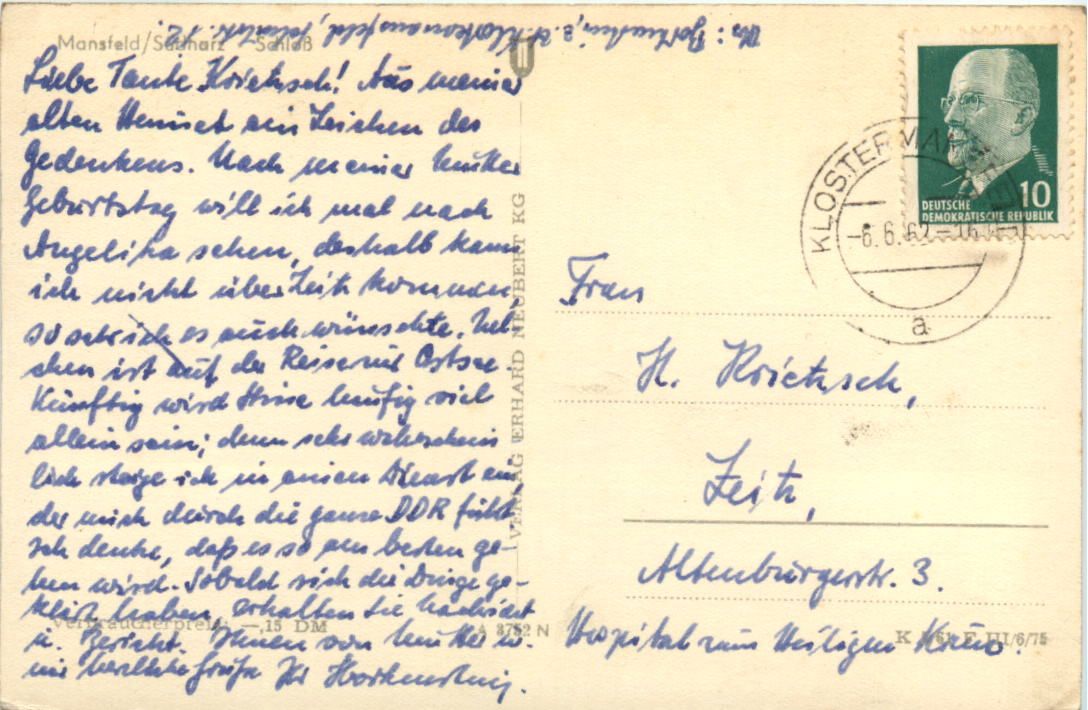 Mansfeld/Südharz Schloß
Liebe Tante Krietzsch! Aus meiner
alten Heimat ein Zeichen des
Gedenkens. Nach meiner Mutter
Geburtstag will ich mal nach
Angelika sehen, deshalb kann
ich nicht über Zeitz kommen,
so sehr ich es auch wünschte.
chen ist auf der Reise zur Ostsee.
Künftig wird häufig viel
allein sein; denn sehr wahrschein
lich steige ich in einen Dienst ein,
der mich durch die ganze DDR führt
Ich denke, daß es so am besten ge-
hen wird. Sobald sich die Dinge ge-
klärt haben, erhalten Sie Nachricht
u. Bericht. Ihnen von Mutter u.
mir herzliche Grüße Ihr
VERLAG ERHARD NEUBERT KG
Verbraucherpreis: —,15 DM
A 3752 N
DEUTSCHE
DEMOKRATISCHE REPUBLIK
10
KLOSTERMANSFELD
-6.6.62
a
Frau
H. Krietzsch,
Zeitz,
Altenburgerstr. 3.
Hospital zum Heiligen Kreuz.
III/6/75